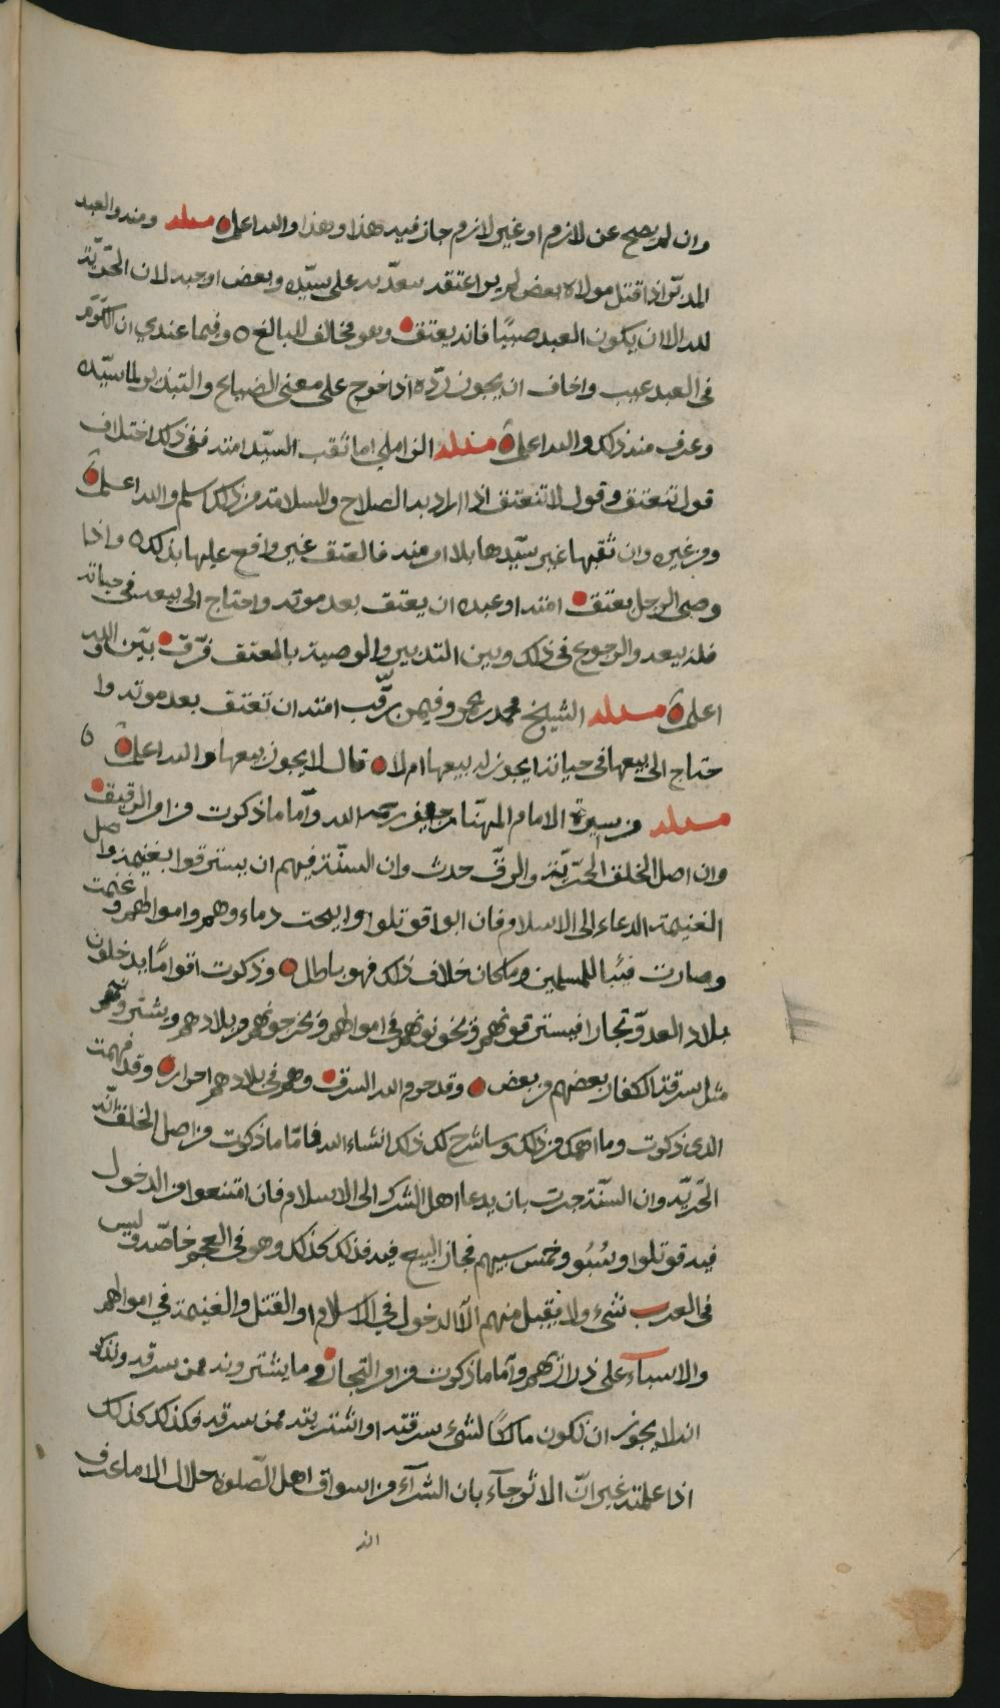 وان لم يصح عن لازم او غير لازم جاز فيه هذا وهذا والله اعلم مسئلة ومنه والعبد
المدبر اذا قتل مولاه بعض لم ير اعتقه بعديه على سيده وبعض اوجبه لان الحرية
لله الا ان يكون العبد صبيا فانه يعتق وهو مخالف للبالغ وفيما عندي ان
في العبد عيب واخاف انه يجوز رده اذا خرج على معنى الضياع والتبذير لما سيده
وعرف منه ذلك والله اعلم مسئلة الزاملي اما ثقب السيد امته ففي ذلك اختلاف
قول تنعتق وقول لا تنعتق اذا اراد به الصلاح والسلامة من ذلك اسلم والله اعلم
ومن غيره وان ثقبها غير سيدها بلا امر منه فالعتق غير واقع عليها بذلك واذا
وصى الرجل بعتق امته او عبده ان يعتق بعد موته واحتاج الى بيعه في حياته
فله بيعه والرجوع في ذلك وبين التدبير والوصية بالعتق فرق بين الله
اعلم مسئلة الشيخ محمد وفيمن امته ان تعتق بعد موته وا
حتاج الى بيعها في حياته ايجوز له بيعها ام لا قال لا يجوز بيعها والله اعلم
مسئلة من سيرة الامام المهنا بن جيفر رحمه الله واما ما ذكرت من امر الرقيق
وان اصل الخلق الحرية والرق حدث وان السنة فيهم ان يسترقوا بغنيمة واصل
الغنيمة الدعاء الى الاسلام فان ابوا قوتلوا وابيحت دماءوهم واموالهم وغنمت
وصارت فيئا للمسلمين وما كان خلاف ذلك فهو باطل وذكرت اقواما يدخلون
بلاد العدو تجارا فيسترقونهم ويخونونهم في اموالهم ويخرجونهم من بلادهم ويشترونهم
مثل سرقة الكفار بعضهم من بعض وقد حرم الله السرق وهم في بلادهم احرار وقد فهمت
الذي ذكرت وما اهمك من ذلك وساشرح لك ذلك انشاء الله فاما ما ذكرت من اصل الخلق انه
الحرية وان السنة جرت بان يدعا اهل الشرك الى الاسلام فان امتنعوا من الدخول
فيه قوتلوا وسبوا وخمس سبيهم فجاز البيع فيه فذلك كذلك وهو في العجم خاصة وليس
في العرب شيء ولا يقبل منهم الا الدخول في الاسلام او القتل والغنيمة في اموالهم
والاسباء على ذراريهم واما ما ذكرت من امر التجار وما يشترونه ممن سرقه
انه لا يجوز ان تكون مالكا لشيء سرقته او اشتريته ممن سرقه وكذلك كذلك
اذا علمته غير ان الاثر جاء بان الشراء من اسواق اهل الصلوة حلال الا ما عرف